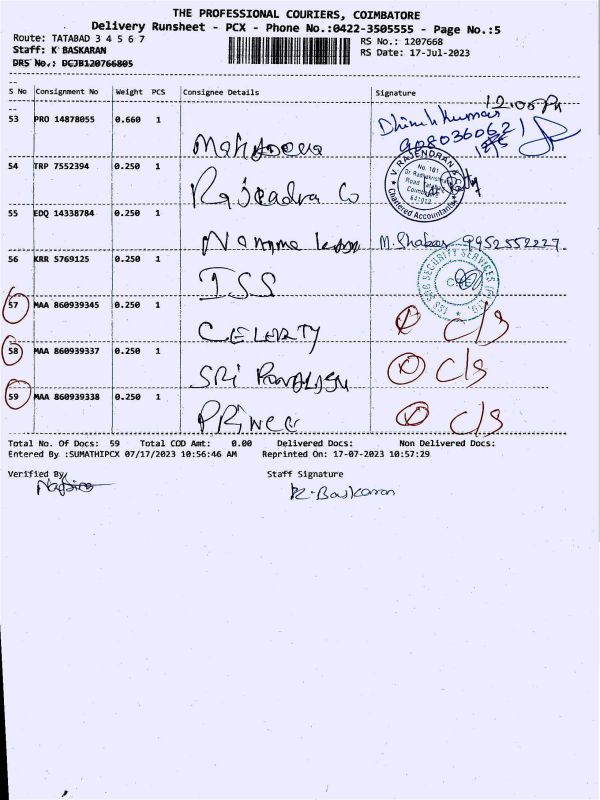 THE PROFESSIONAL COURIERS, COIMBATORE
Delivery Runsheet - PCX - Phone No.:0422-3505555 - Page No.:5
Route: TATABAD 3 4 5 6 7
RS No.: 1207668
Staff: K BASKARAN
RS Date: 17-Jul-2023
DRS No.: DCJB120766805
S No Consignment No Weight PCS Consignee Details Signature
12.05 Pm
53 PRO 14878055 0.660 1
54 TRP 7552394 0.250 1
V. RAJENDRAN &
No. 101
Chartered Accountants
55 EDQ 14338784 0.250 1
9952552227
56 KRR 5769125 0.250 1 ISS
SECURITY SERVICES
57 MAA 860939345 0.250 1 c/s
58 MAA 860939337 0.250 1 SRI c/s
59 MAA 860939338 0.250 1 PRINCE c/s
Total No. Of Docs: 59 Total COD Amt: 0.00 Delivered Docs: Non Delivered Docs:
Entered By :SUMATHIPCX 07/17/2023 10:56:46 AM Reprinted On: 17-07-2023 10:57:29
Verified By Staff Signature
K. Baskaran